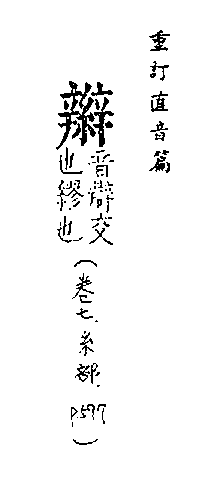 重訂直音篇
辮
音辮交
也繆也
(卷七.糸部.P.597)